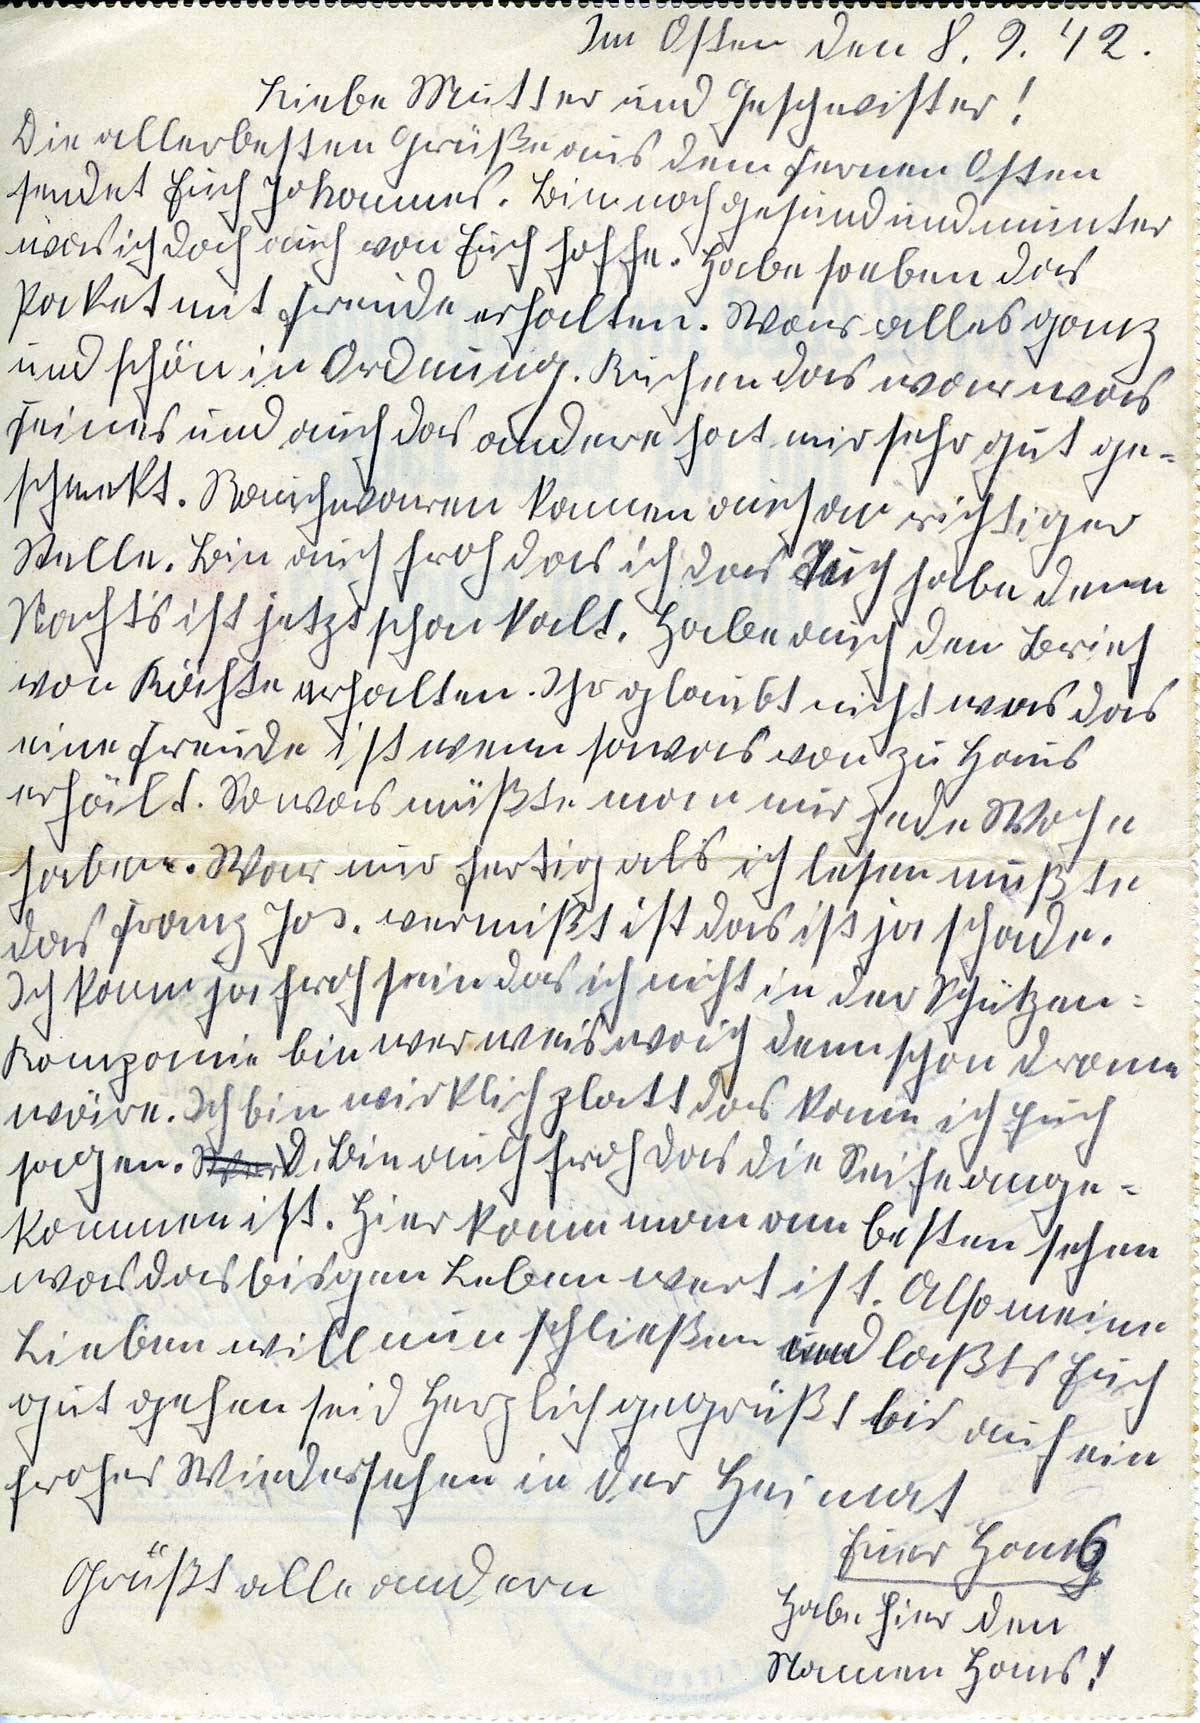 Im Osten den 8. 9. 42.
Liebe Mutter und Geschwister!
Die allerbesten Grüße aus dem fernen Osten
sendet Euch Johannes. Bin noch gesund und munter
was ich doch auch von Euch hoffe. Habe soeben das
Paket mit Freude erhalten. War alles ganz
und schön in Ordnung. Kuchen das war was
feines und auch das andere hat mir sehr gut ge=
schmekt. Rauchwaren kamen auch an richtiger
Stelle. Bin auch froh das ich das habe denn
Nachts ist jetzt schon kalt. Habe auch den Brief
von Käthe erhalten. Ihr glaubt nicht was das
eine Freude ist wenn sowas von zu Haus
erhält. Sowas müßte man nur jede Woche
haben. War nur fertig als ich lesen mußte
das Franz Jos. vermißt ist das ist ja schade.
Ich kann ja froh sein das ich nicht in der Schützen=
Kompanie bin wer weis wo ich denn schon drann
wäre. Ich bin wirklich platt das kann ich Euch
sagen. Bin auch froh das die Seife ange=
kommen ist. Hier kann man am besten sehen
was das bisgen Leben wert ist. Also meine
Lieben will nun schließen und laßts Euch
gut gehen seid Herzlich gegrüßt bis auf ein
frohes Wiedersehen in der Heimat
Euer Hans
Grüßt alle andern
Habe hier den
Namen Hans!